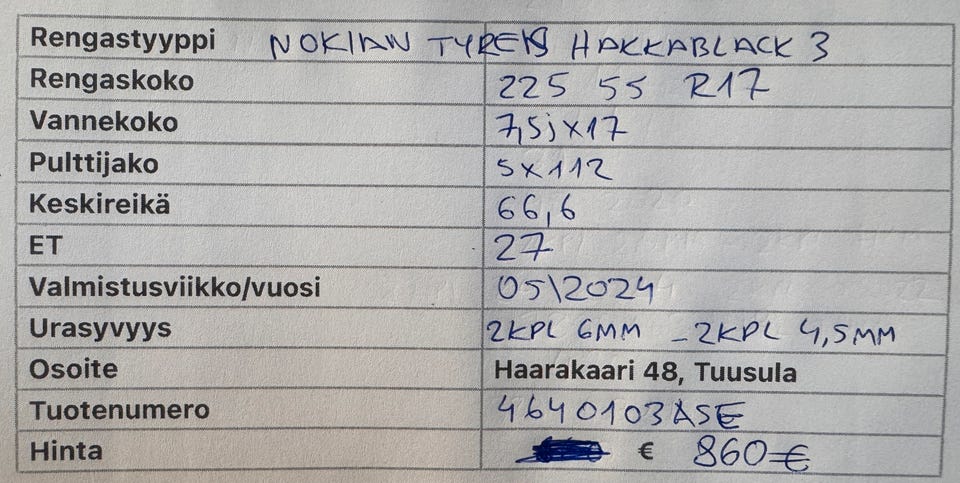 Rengastyyppi NOKIAN TYRES HAKKABLACK 3
Rengaskoko 225 55 R17
Vannekoko 7,5jx17
Pulttijako 5x112
Keskireikä 66,6
ET 27
Valmistusviikko/vuosi 05\2024
Urasyvyys 2KPL 6MM - 2KPL 4,5MM
Osoite Haarakaari 48, Tuusula
Tuotenumero 4640103ASE
Hinta € 860€